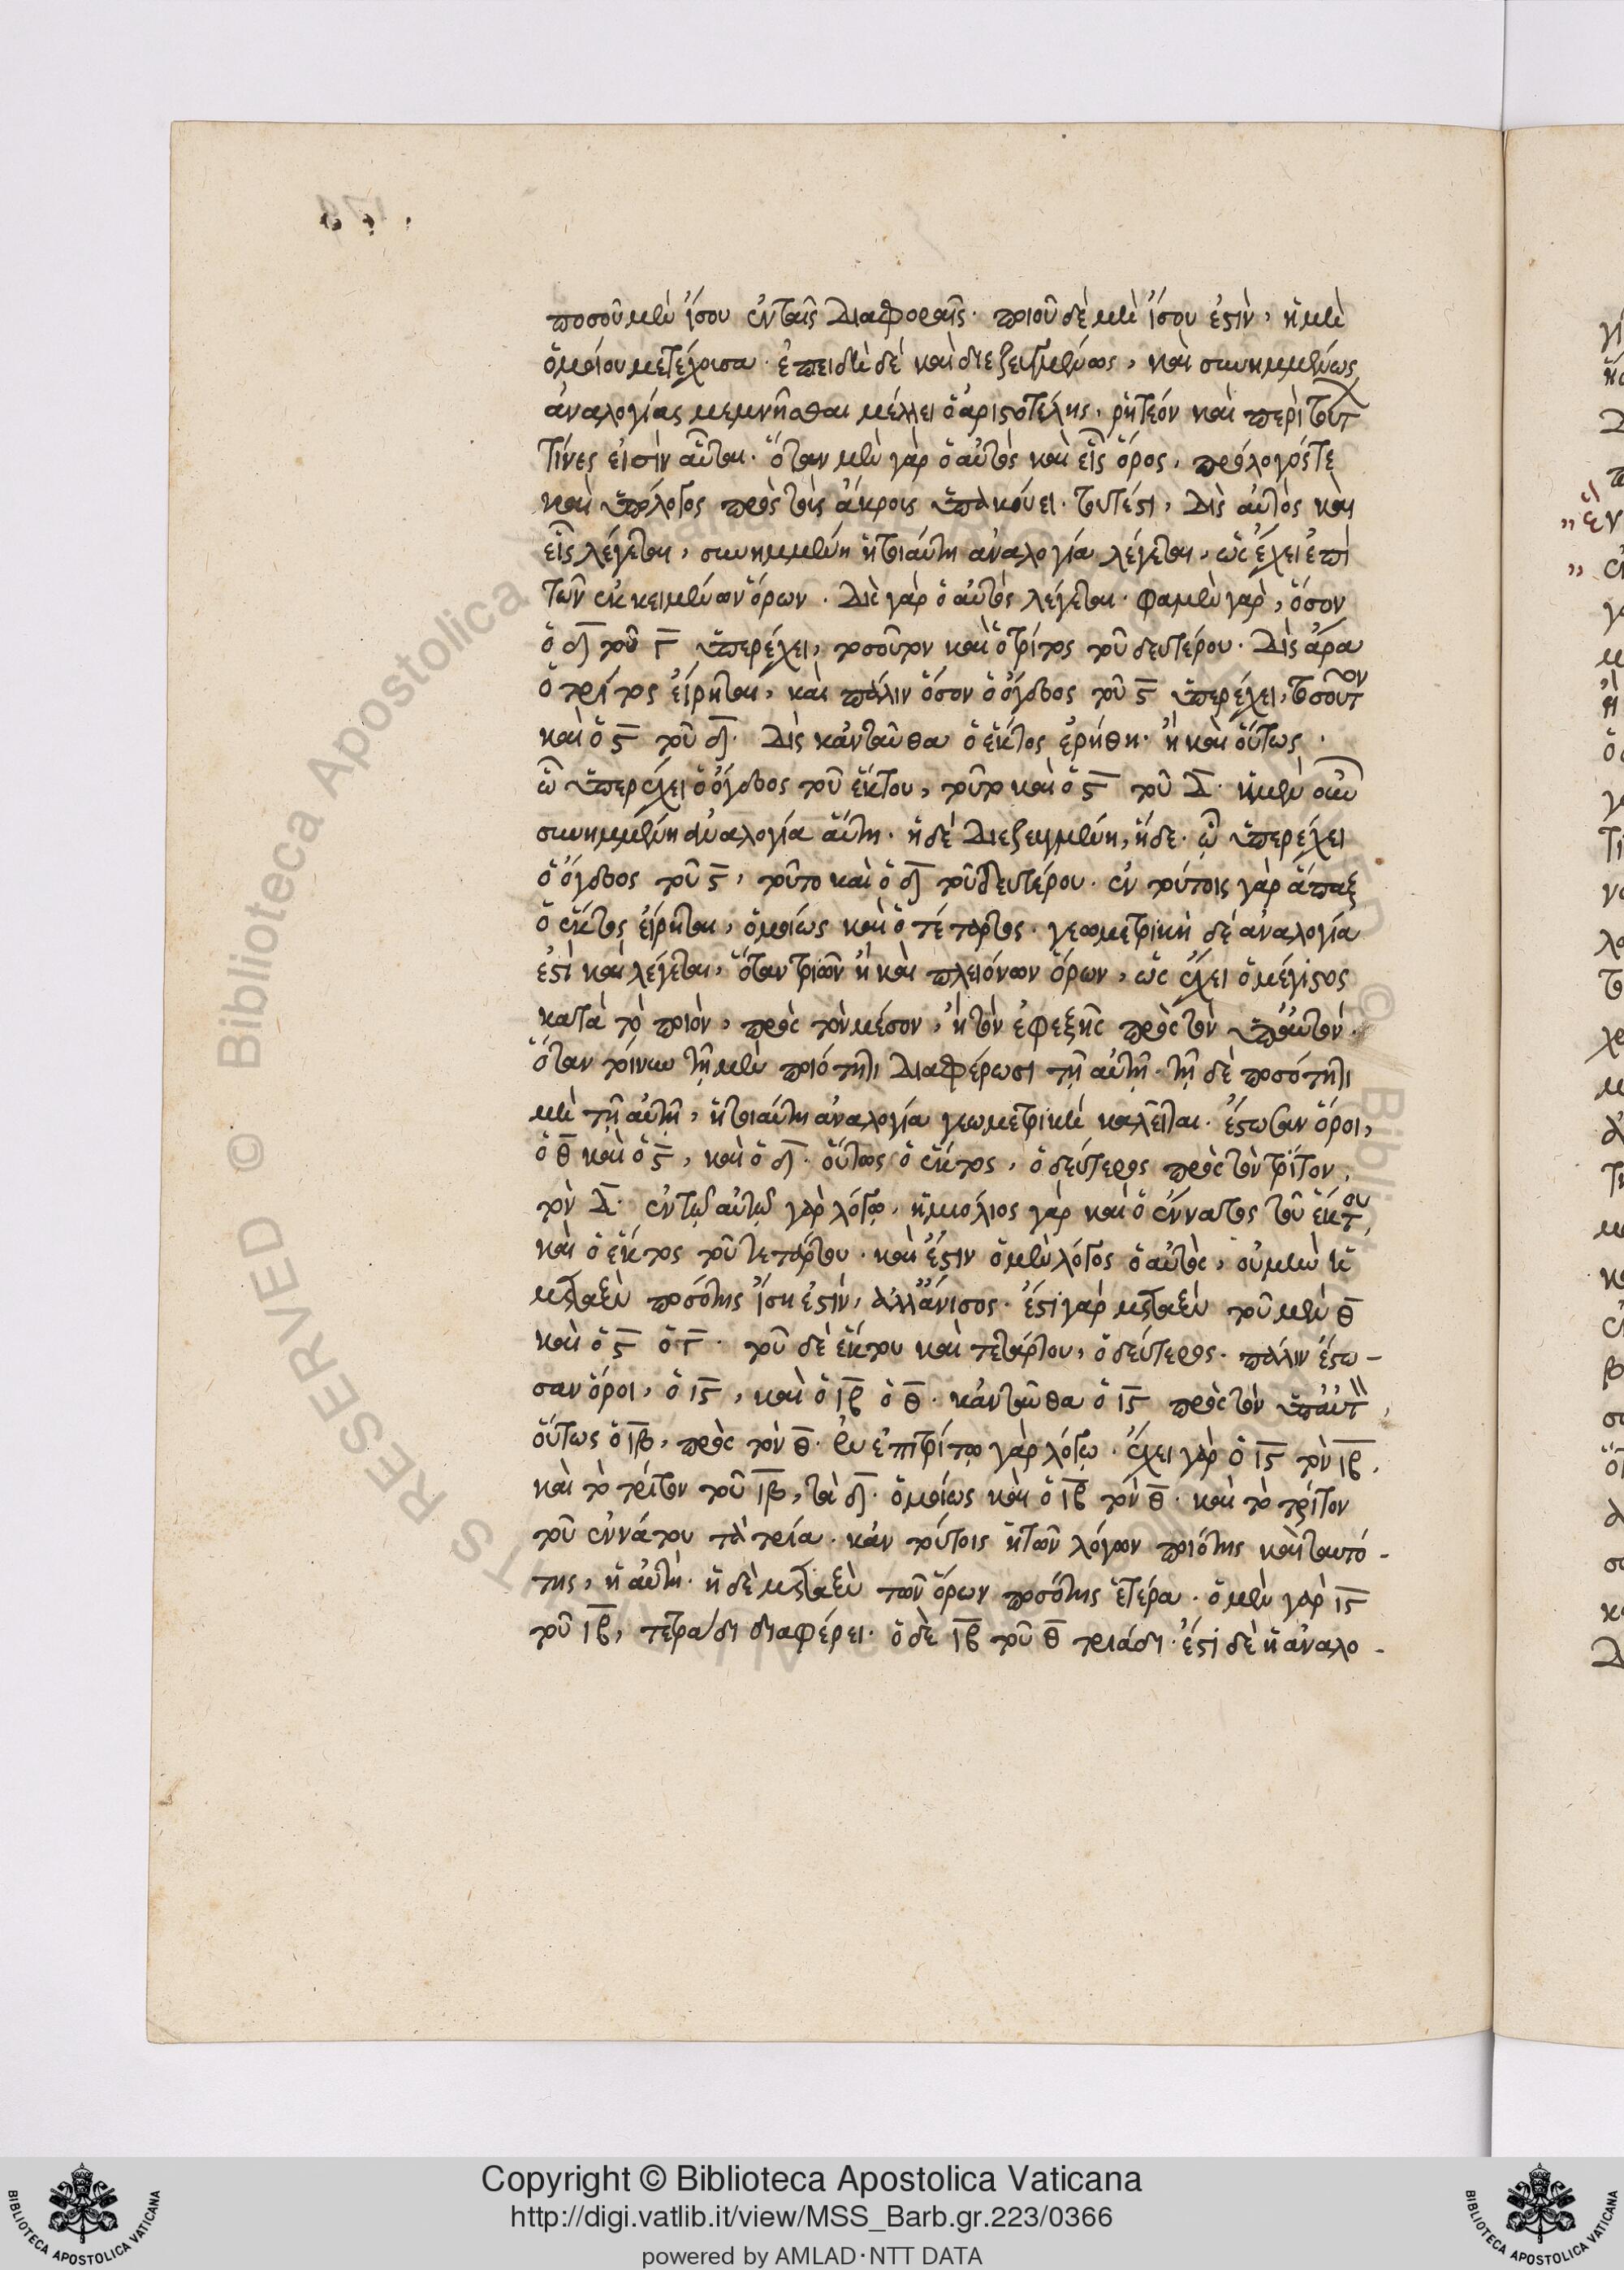 ποσοῦ μὲν ἴσου ἐν ταῖς διαφοραῖς· ποιοῦ δὲ μὴ ἴσου ἐστὶν, ἢ μὴ
ὁμοίου μετέχουσα· ἐπειδὴ δὲ καὶ διεζευγμένως, καὶ συνημμένως
ἀναλογίας μεμνῆσθαι μέλλει ὁ ἀριστοτέλης, ῥητέον καὶ περὶ τούτ
τίνες εἰσὶν αὗται· ὅταν μὲν γὰρ ὁ αὐτὸς καὶ εἷς ὅρος, πρόλογός τε
καὶ ὑπόλογος πρὸς τοῖς ἄκροις ὑπακούει· τουτέστι, δὶς αὐτὸς καὶ
εἷς λέγεται, συνημμένη ἡ τοιαύτη ἀναλογία λέγεται, ὡς ἔχει ἐπὶ
τῶν ἐκκειμένων ὅρων· δὶς γὰρ ὁ αὐτὸς λέγεται· φαμὲν γὰρ, ὅσον
ὁ δ τοῦ Γ ὑπερέχει, τοσοῦτον καὶ ὁ τρίτος τοῦ δευτέρου· δὶς ἄρα
ὁ τρίτος εἴρηται, καὶ πάλιν ὅσον ὁ ὄγδοος τοῦ ς ὑπερέχει, τοσοῦτον
καὶ ὁ ς τοῦ δ· δὶς κἀνταῦθα ὁ ἕκτος ἐρήθη· ἢ καὶ οὕτως·
ᾧ ὑπερέχει ὁ ὄγδοος τοῦ ἕκτου, τούτω καὶ ὁ ς τοῦ Δ· ἡ μὲν οὖν
συνημμένη ἀναλογία αὕτη· ἡ δὲ διεζευγμένη, ἥδε· ᾧ ὑπερέχει
ὁ ὄγδοος τοῦ ς, τοῦτο καὶ ὁ δ τοῦ δευτέρου· ἐν τούτοις γὰρ ἅπαξ
ὁ ἕκτος εἴρηται, ὁμοίως καὶ ὁ τέταρτος· γεωμετρικὴ δὲ ἀναλογία
ἐστὶ καὶ λέγεται, ὅταν τριῶν ἢ καὶ πλειόνων ὅρων, ὡς ἔχει ὁ μέγιστος
κατὰ τὸ ποιὸν, πρὸς τὸν μέσον, ἢ τὸν ἐφεξῆς πρὸς τὸν ὑπ' αὐτὸν·
ὅταν τοίνυν τῇ μὲν ποιότητι διαφέρωσι τῇ αὐτῇ· τῇ δὲ ποσότητι
μὴ τῇ αὐτῇ, ἡ τοιαύτη ἀναλογία γεωμετρικὴ καλεῖται· ἔστωσαν ὅροι,
ὁ θ καὶ ὁ ς, καὶ ὁ δ· οὕτως ὁ ἕκτος, ὁ δεύτερος πρὸς τὸν τρίτον,
τὸν Δ· ἐν τῷ αὐτῷ γὰρ λόγῳ, ἡμιόλιος γὰρ καὶ ὁ ἔννατος τοῦ ἕκτου,
καὶ ὁ ἕκτος τοῦ τετάρτου· καὶ ἔστιν ὁ μὲν λόγος ὁ αὐτὸς, οὐ μὴν ἡ
μεταξὺ ποσότης ἴση ἐστὶν, ἀλλ' ἄνισος· ἔστι γὰρ μεταξὺ τοῦ μὲν θ
καὶ ὁ ς ὁ Γ· τοῦ δὲ ἕκτου καὶ τετάρτου, ὁ δεύτερος· πάλιν ἔστω-
σαν ὅροι, ὁ ις, καὶ ὁ ιβ ὁ θ· κἀνταῦθα ὁ ις πρὸς τὸν ὑπ' αὐτ,
οὕτως ὁ ιβ, πρὸς τὸν θ· ἐν ἐπιτρίτω γὰρ λόγω· ἔχει γὰρ ὁ ις τὸν ιβ,
καὶ τὸ τρίτον τοῦ ιβ, τὰ δ· ὁμοίως καὶ ὁ ιβ τὸν θ· καὶ τὸ τρίτον
τοῦ ἐννάτου τὰ τρία· κἀν τούτοις ἡ τῶν λόγων ποιότης καὶ ταυτό-
της, ἡ αὐτὴ· ἡ δὲ μεταξὺ τῶν ὅρων ποσότης ἑτέρα· ὁ μὲν γὰρ ις
τοῦ ιβ, τετράδι διαφέρει· ὁ δὲ ιβ τοῦ θ τριάδι· ἔστι δὲ ἡ ἀναλο-
Copyright © Biblioteca Apostolica Vaticana
http://digi.vatlib.it/view/MSS_Barb.gr.223/0366
powered by AMLAD·NTT DATA